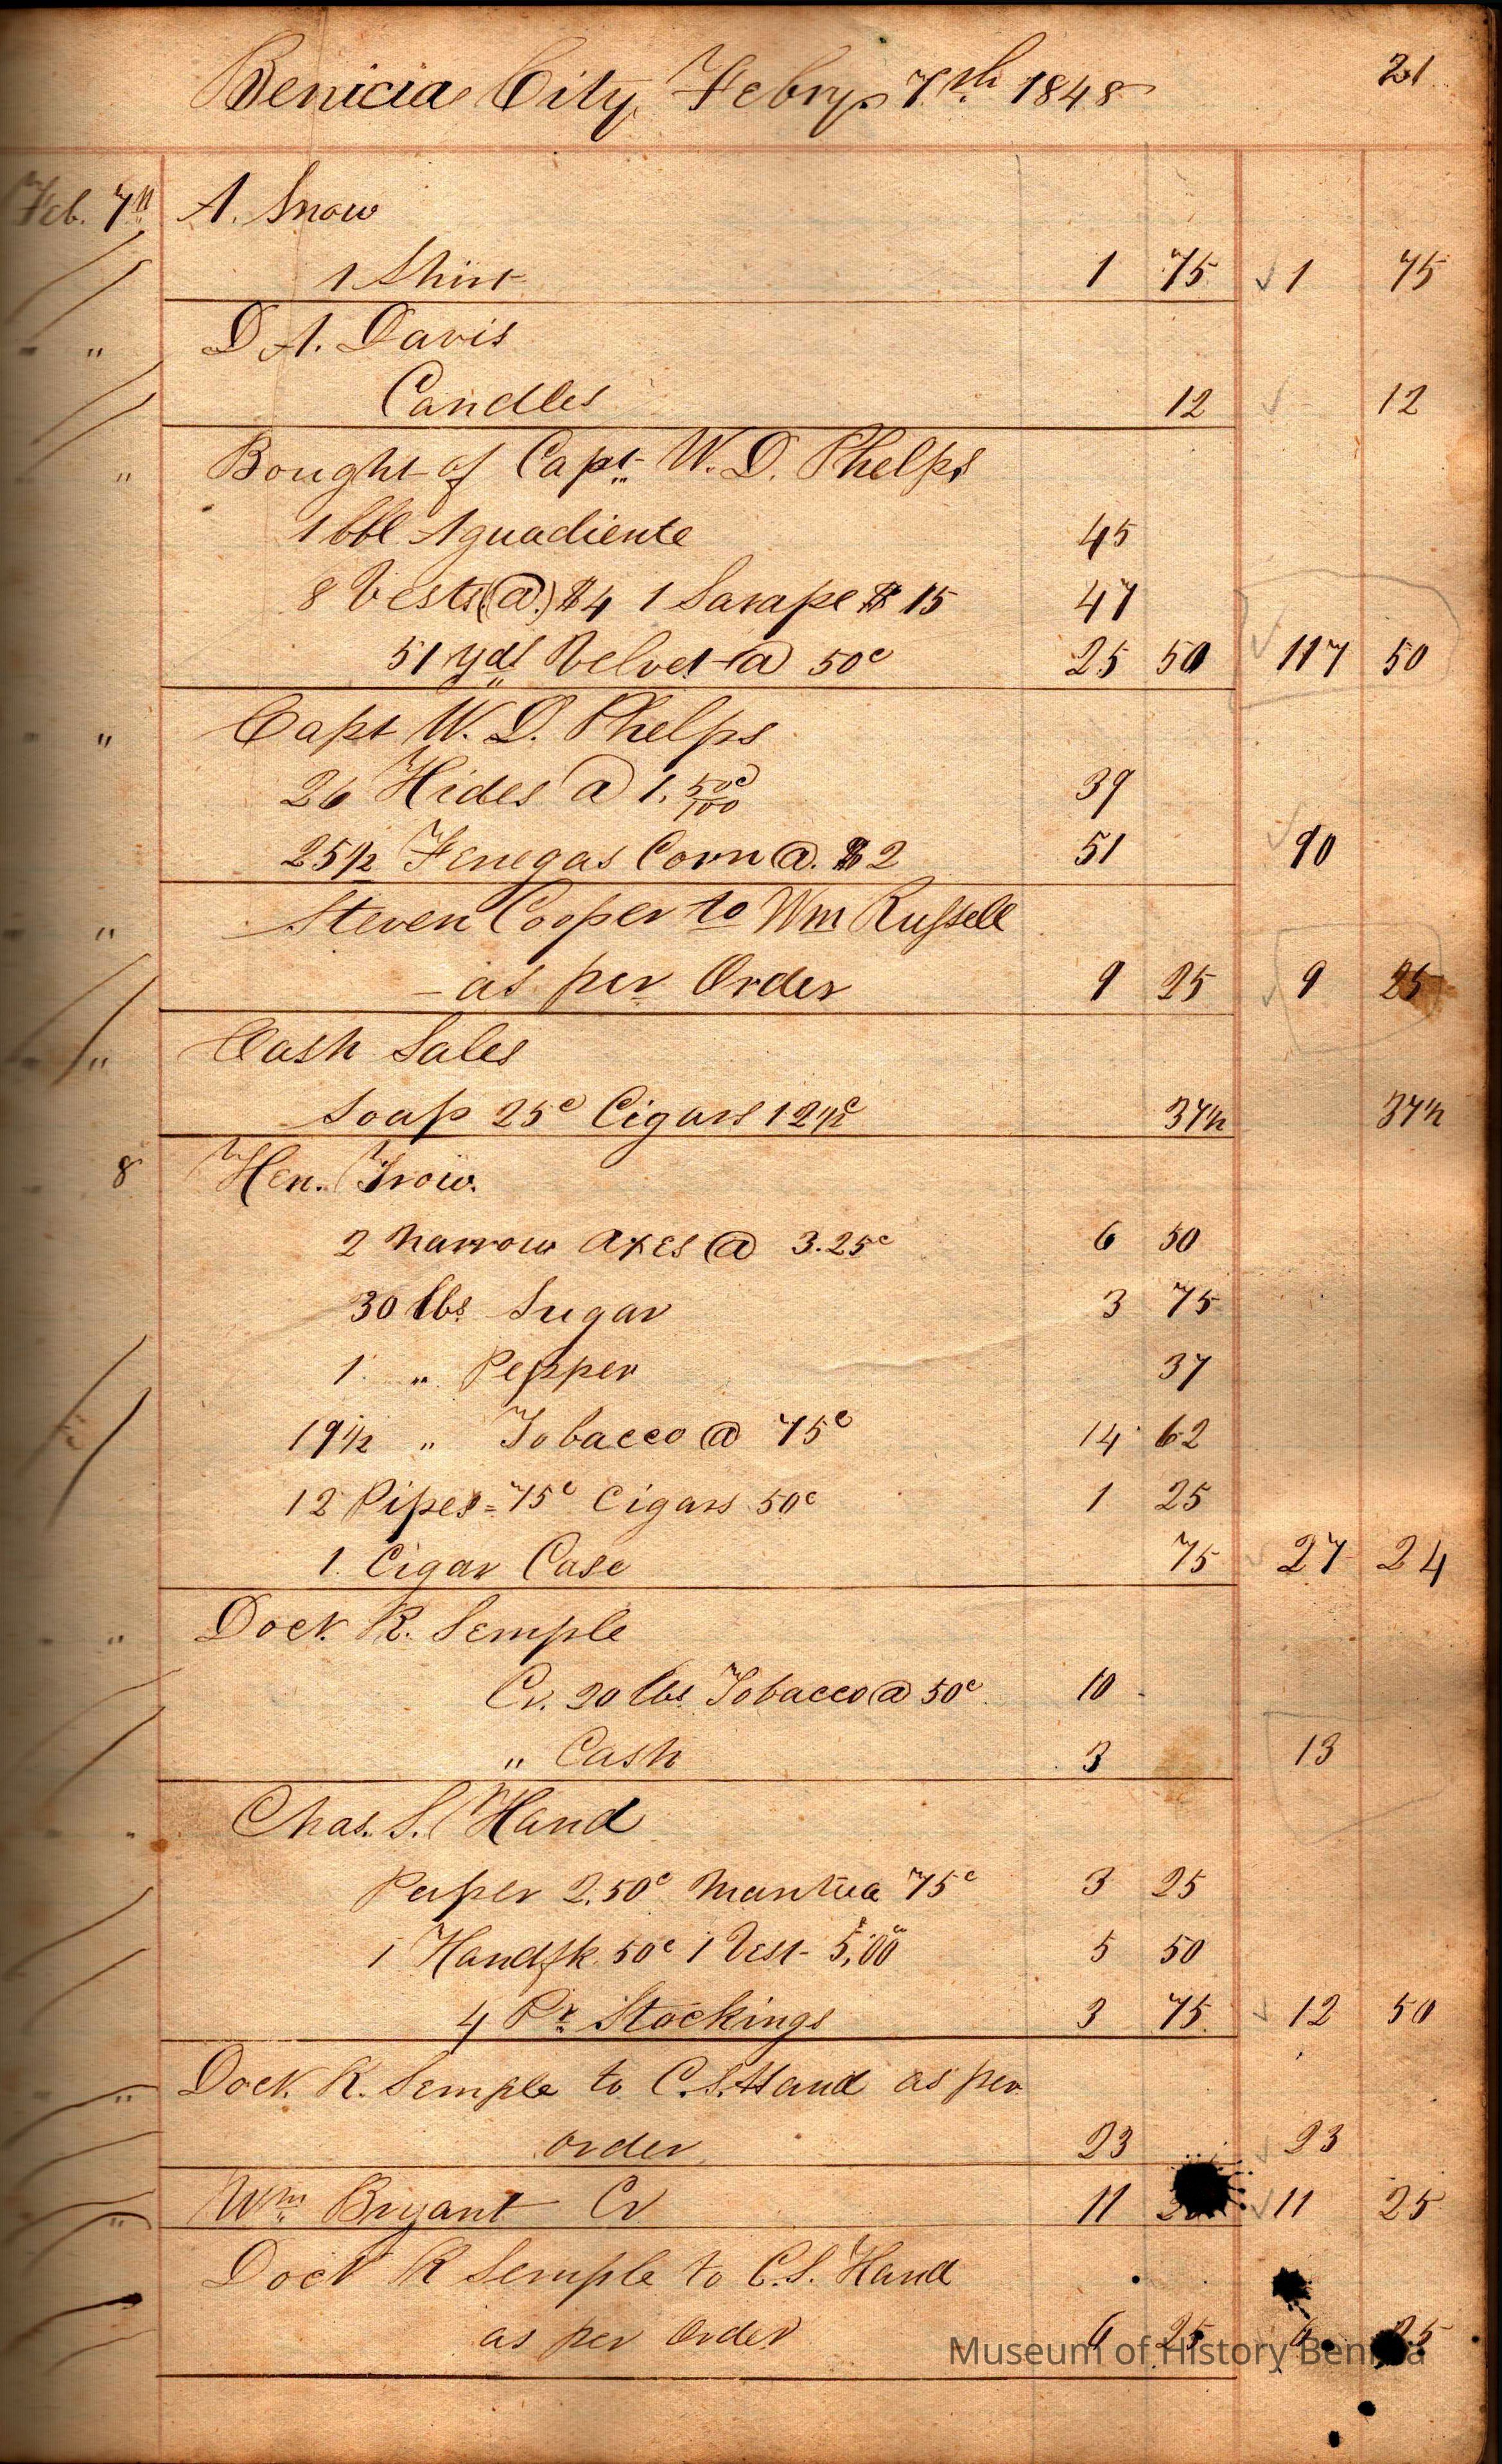 Benicia City, Febry. 7th 1848
21
Feb. 7th A. Snow
1 Shirt 1 75 ✓ 1 75
" D A. Davis
Candles 12 ✓ 12
" Bought of Capt. W. D. Phelps
1 bbl Aguadiente 45
8 Vests (@) $4 1 Sarape $ 15 47
51 yds Velvet @ 50c 25 50 ✓ 117 50
" Capt W. D. Phelps
26 Hides @ 1. 50c/100 39
25 1/2 Fenegas Corn @. $2 51 ✓ 90
" Steven Cooper to Wm Russell
– as per Order 9 25 ✓ 9 25
" Cash Sales
Soap 25c Cigars 12 1/2c 37 1/2 37 1/2
8 Hen. Trow.
2 Narrow Axes @ 3.25c 6 50
30 lbs Sugar 3 75
1 " Pepper 37
19 1/2 " Tobacco @ 75c 14 62
12 Pipes = 75c Cigars 50c 1 25
1. Cigar Case 75 ✓ 27 24
" Doct. R. Semple
Cr. 20 lbs Tobacco @ 50c 10
" Cash 3 13
" Chas. S. Hand
Paper 2.50c Mantua 75c 3 25
1 Handfk 50c 1 Vest 5,00 5 50
4 Pr Stockings 3 75 ✓ 12 50
" Doct. R. Semple to C. S. Hand as per
order 23 ✓ 23
" Wm Bryant Cr 11 ✓ 11 25
Doct R Semple to C. S. Hand
as per Order 6 25 6 25
Museum of History Benicia